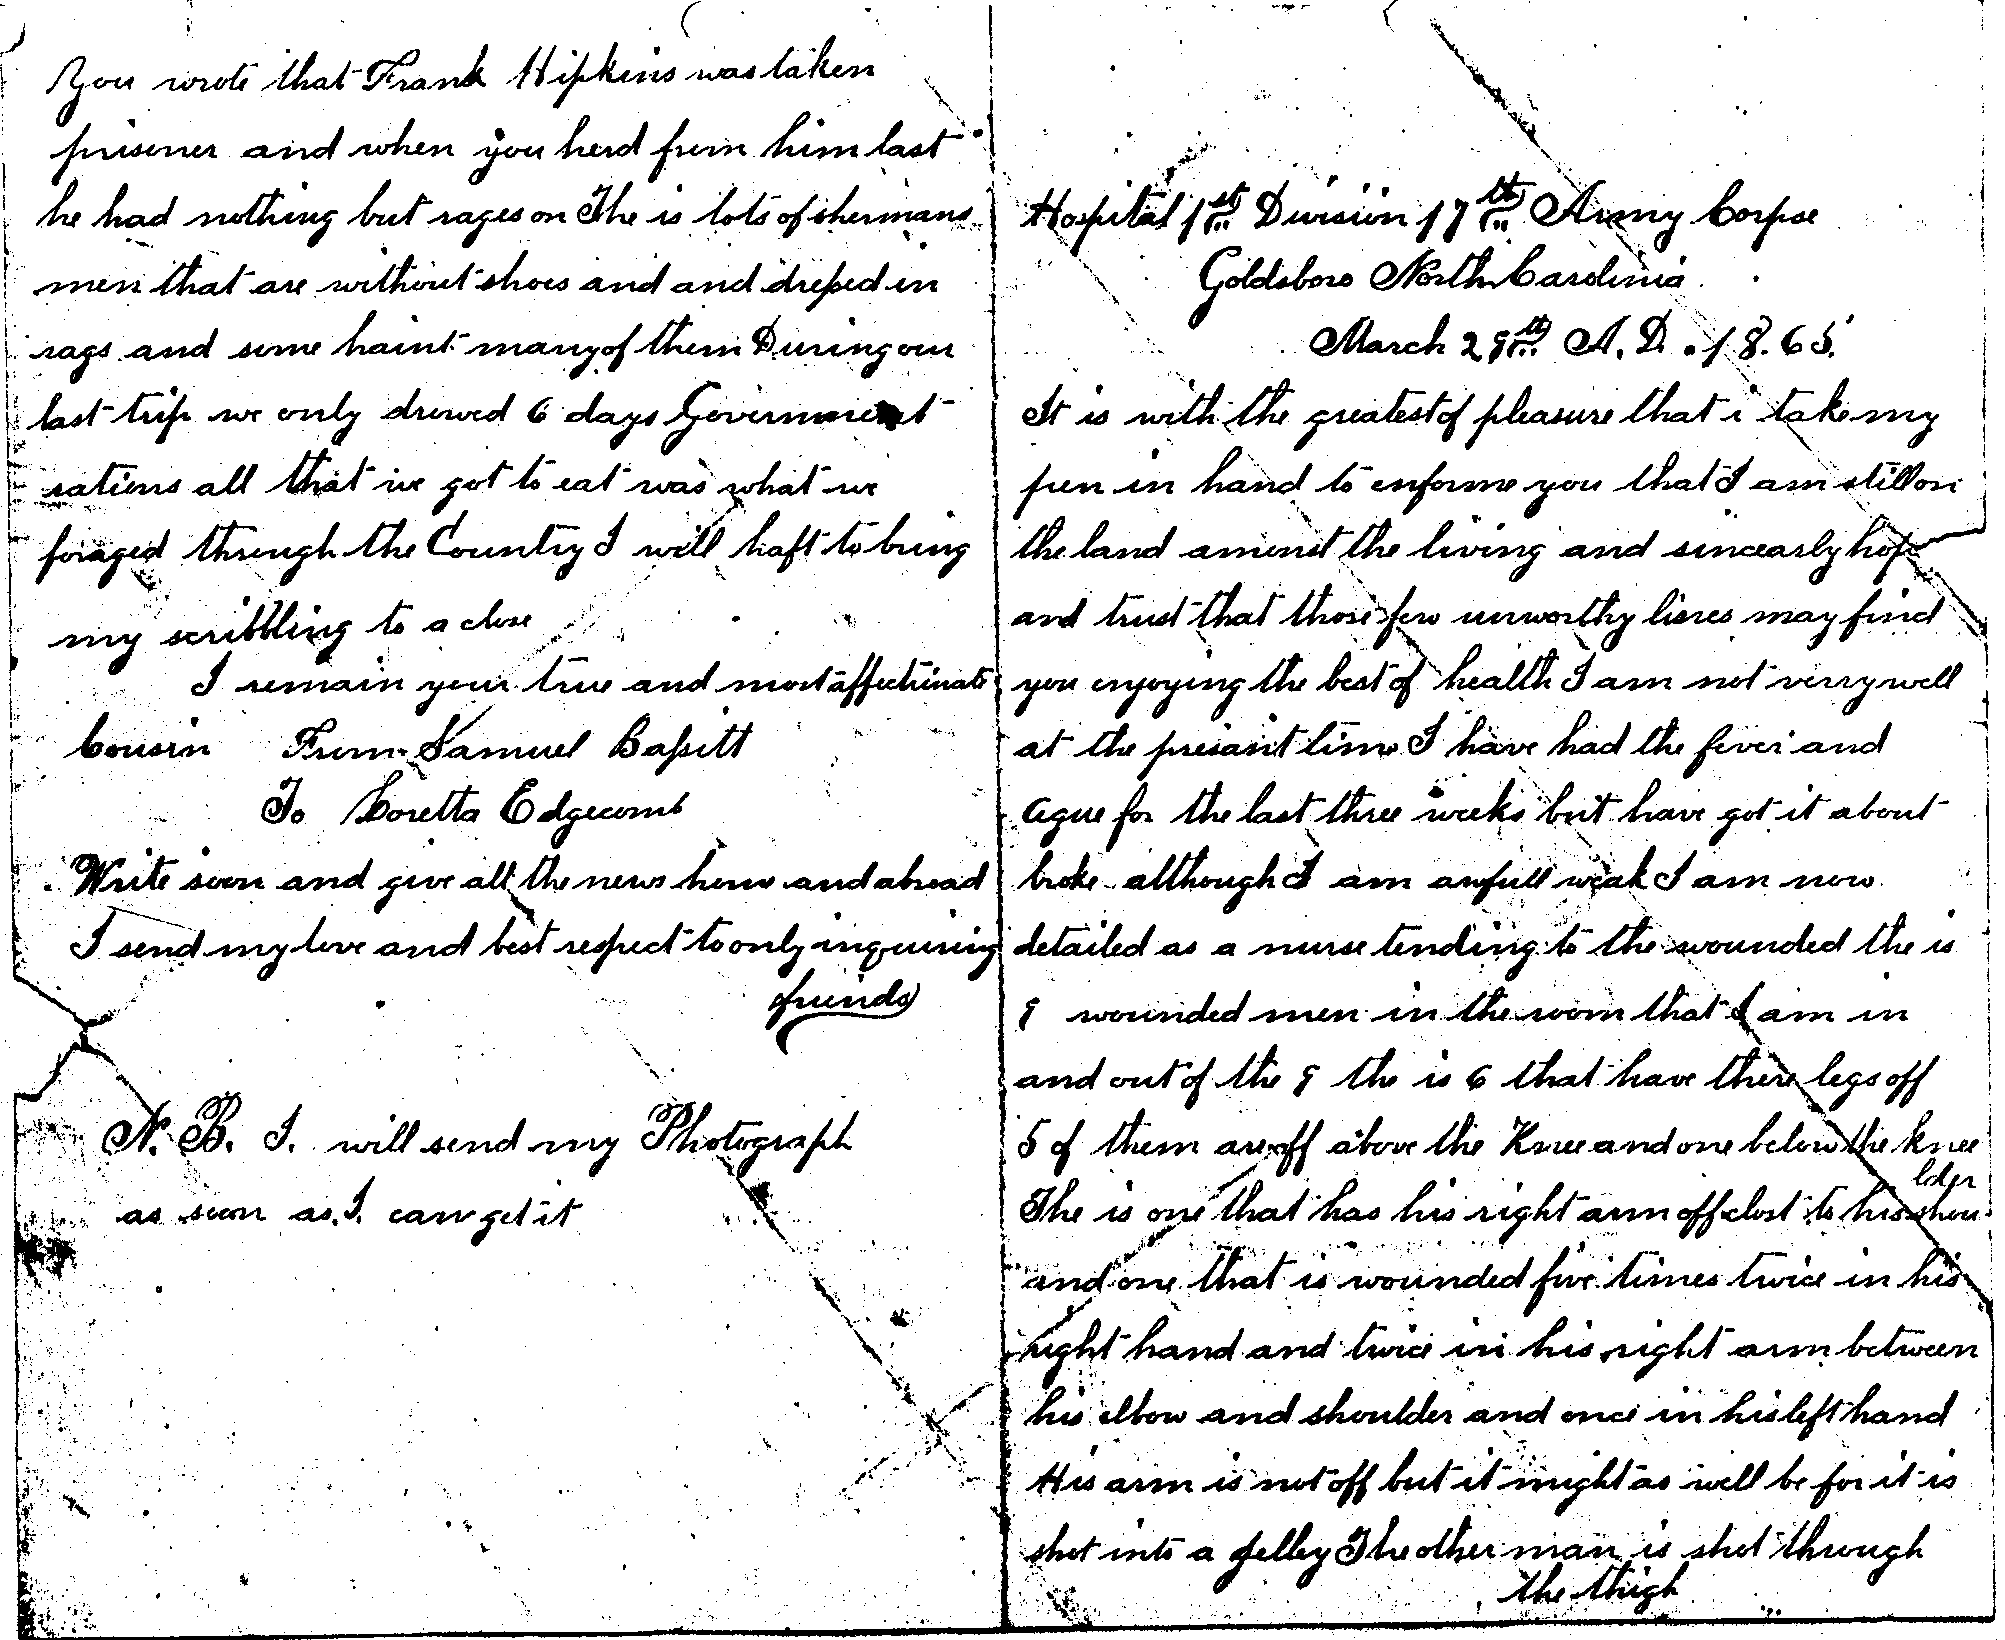 You wrote that Frank Hipkins was taken
prisener and when you herd frum him last
he had nothing but rages on The is lots of shermans
men that are without shoes and and dressed in
rags and some haint many of them During our
last trip we only drewed 6 days Goverment
rations all that we got to eat was what we
foraged through the Country I will haft to bring
my scribbling to a close
I remain your true and most affectinate
Cousin Frum Samuel Bassitt
To Loretta Edgecomb
Write soon and give all the news home and abroad
I send my love and best respect to only inqruiring
freinds
N. B. I. will send my Photograph
as soon as I. can get it
Hospital 1st Division 17th Army Corpse
Goldsboro North Carolinia
March 29th A. D. 1865.
It is with the greatest of pleasure that i take my
pen in hand to enforme you that I am still on
the land amonst the living and sincearly hope
and trust that those few unworthy lines may find
you enjoying the best of health I am not verry well
at the presant time I have had the fever and
ague for the last three weeks but have got it about
broke although I am awfull weak I am now
detailed as a nurse tending to the wounded the is
9 wounded men in the room that I am in
and out of the 9 the is 6 that have there legs off
5 of them are off above the Knee and one below the knee
The is one that has his right arm off clost to his shoulder
and one that is wounded five times twice in his
right hand and twice in his right arm between
his elbow and shoulder and once in his left hand
His arm is not off but it might as well be for it is
shot into a jelley The other man is shot through
the thigh